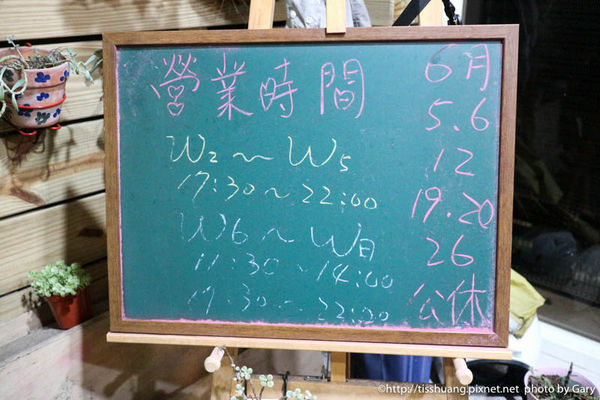 營業時間
W2～W5
17:30～22:00
W6～W日
11:30～14:00
17:30～22:00
6月
5.6
12
19.20
26
公休
©http://tisshuang.pixnet.net photo by Gary